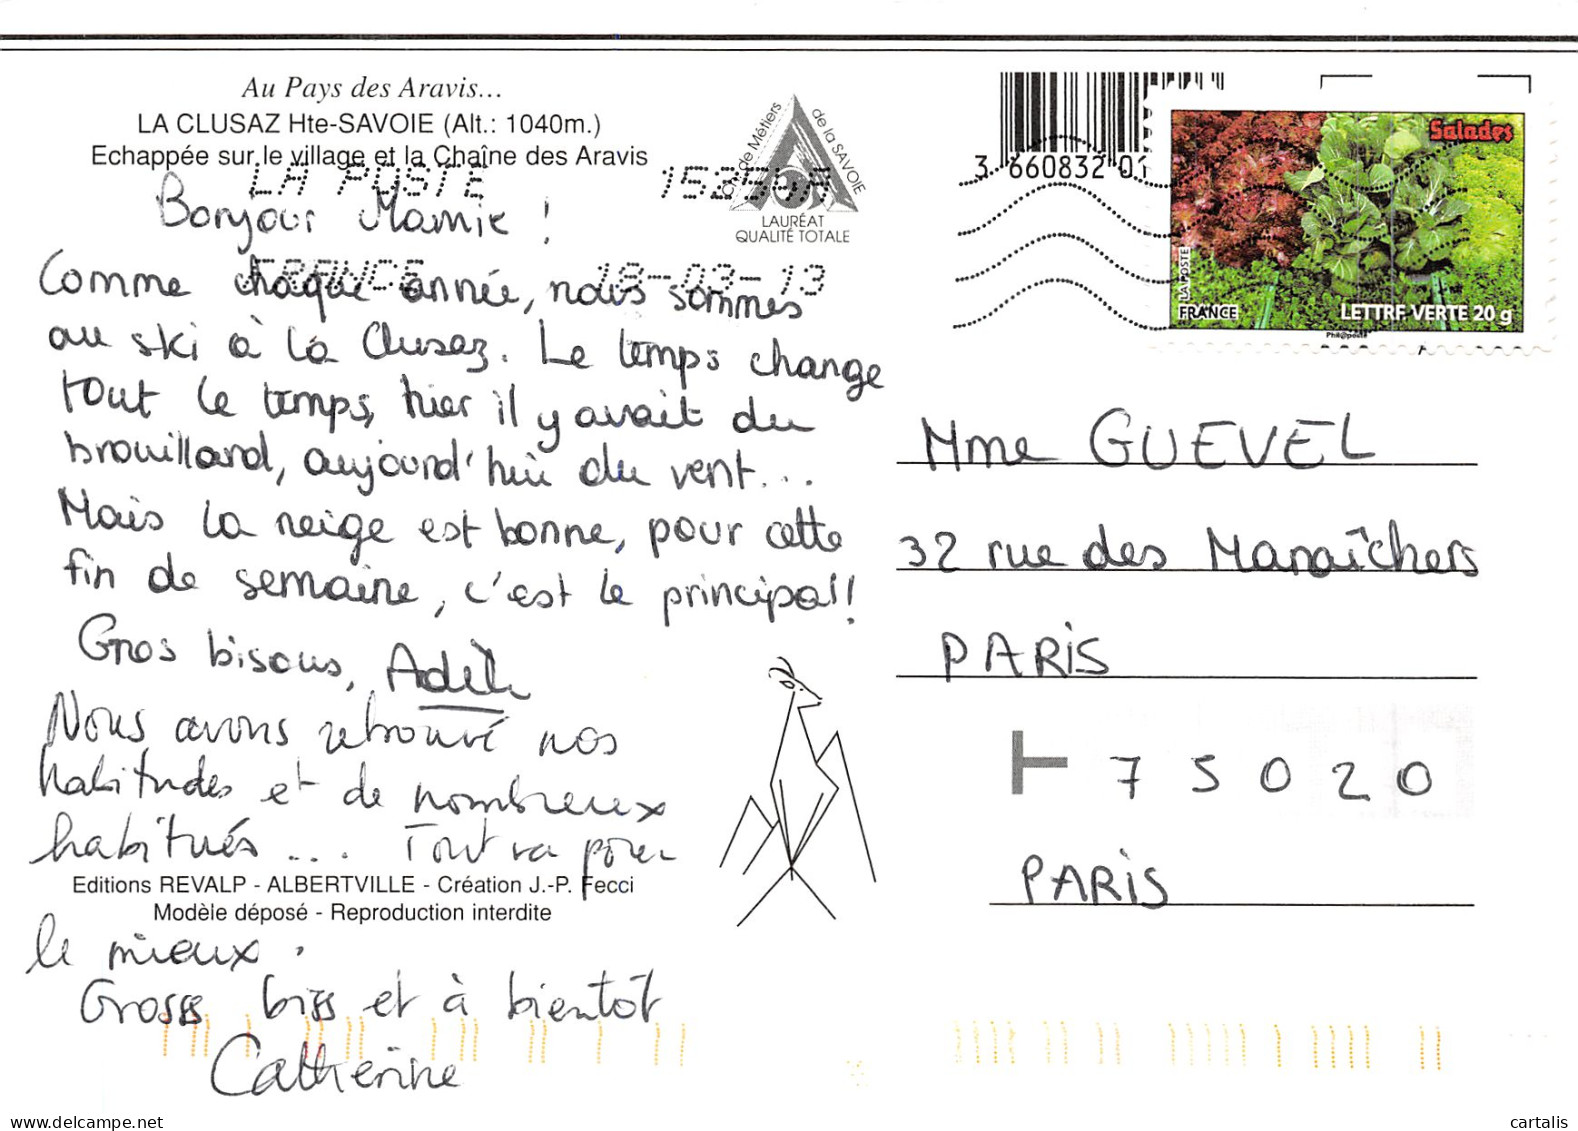 Au Pays des Aravis...
LA CLUSAZ Hte-SAVOIE (Alt.: 1040m.)
Echappée sur le village et la Chaîne des Aravis
LA POSTE
15259A
FRANCE
18-03-13
de Métiers de la SAVOIE
LAURÉAT
QUALITÉ TOTALE
3 660832 01
Salades
LA POSTE
FRANCE
LETTRE VERTE 20 g
Phil@poste
Bonjour Mamie !
Comme chaque année, nous sommes
au ski à la Clusaz. Le temps change
tout le temps, hier il y avait du
brouillard, aujourd'hui du vent...
Mais la neige est bonne, pour cette
fin de semaine, c'est le principal!
Gros bisous, Adèle
Nous avons retrouvé nos
habitudes et de nombreux
habitués ... Tout va pour
Editions REVALP - ALBERTVILLE - Création J.-P. Fecci
Modèle déposé - Reproduction interdite
le mieux.
Grosses biss et à bientôt
Catherine
Mme GUEVEL
32 rue des Maraîchers
PARIS
75020
PARIS
www.delcampe.net
cartalis